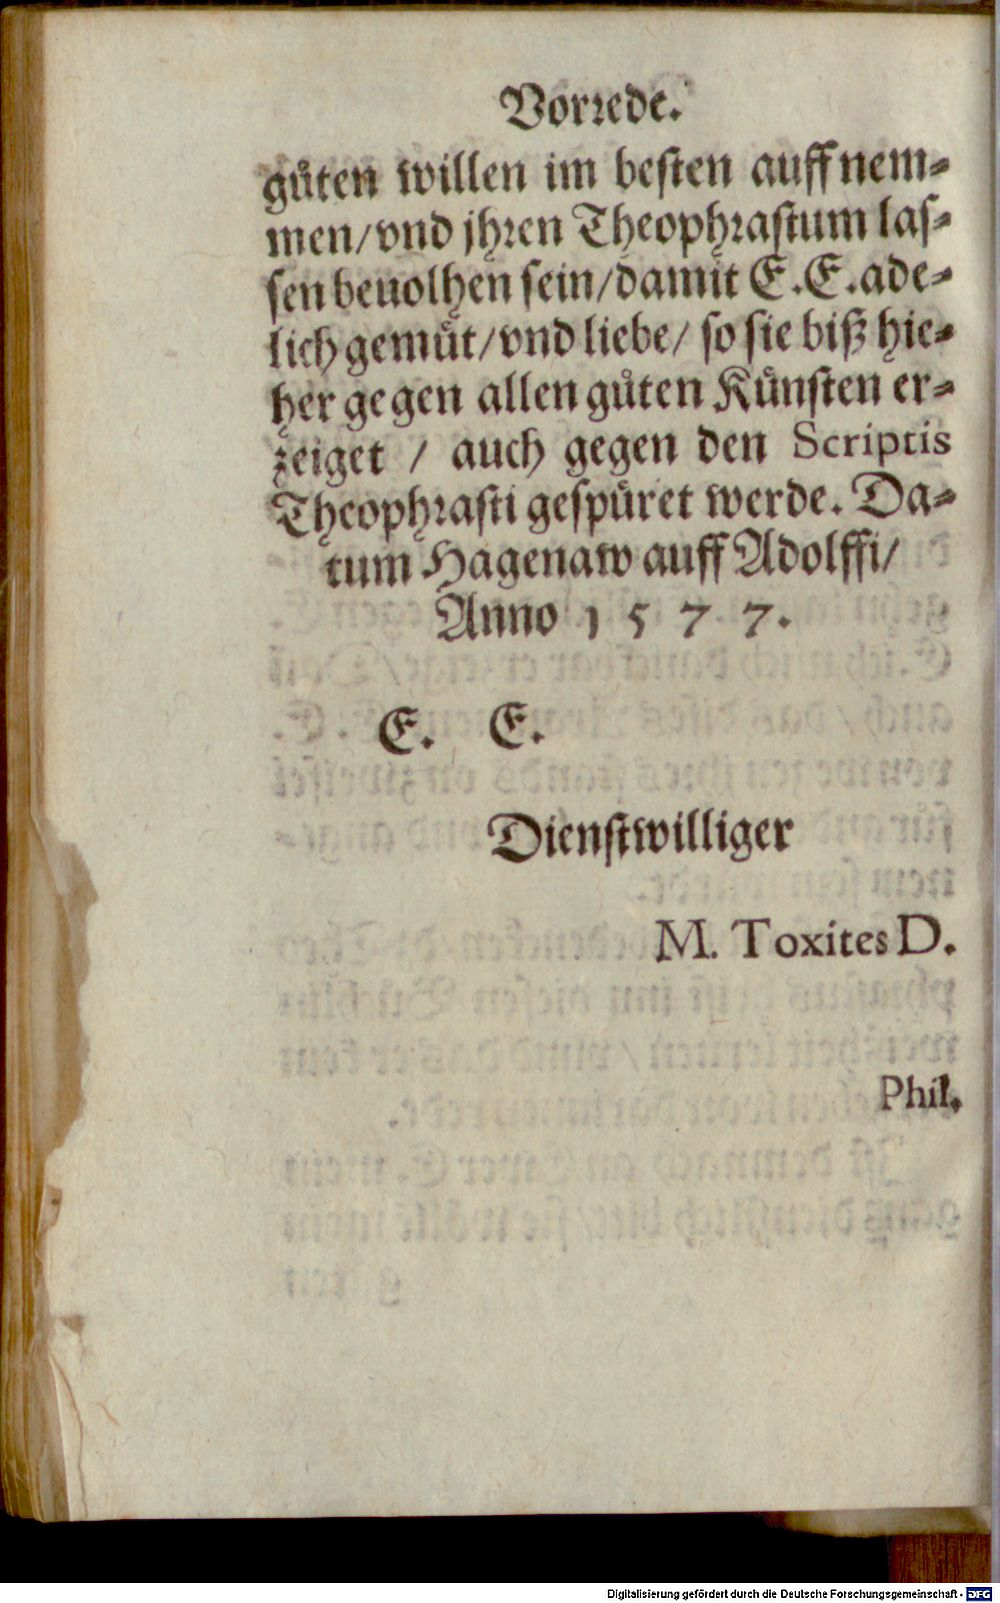 Vorrede.
guͦten willen im beſten auffnem⸗
men/vnd jhren Theophraſtum laſ⸗
ſen beuolhen ſein/damit E.E.ade⸗
lich gemuͤt/vnd liebe/ ſo ſie biß hie⸗
her gegen allen guͦten Kuͤnſten er⸗
zeiget / auch gegen den Scriptis
Theophraſti geſpuͤret werde. Da⸗
tum Hagenaw auff Adolffi/
Anno 1 5 7 7.
E. E.
Dienſtwilliger
M. Toxites D.
Phil.
Digitalisierung gefördert durch die Deutsche Forschungsgemeinschaft - DFG